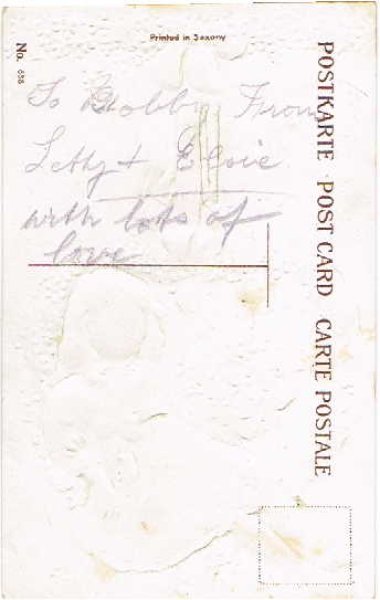 Printed in Saxony
No. 658
To Bobby From
Letty + Elsie
with lots of
love
POSTKARTE POST CARD CARTE POSTALE